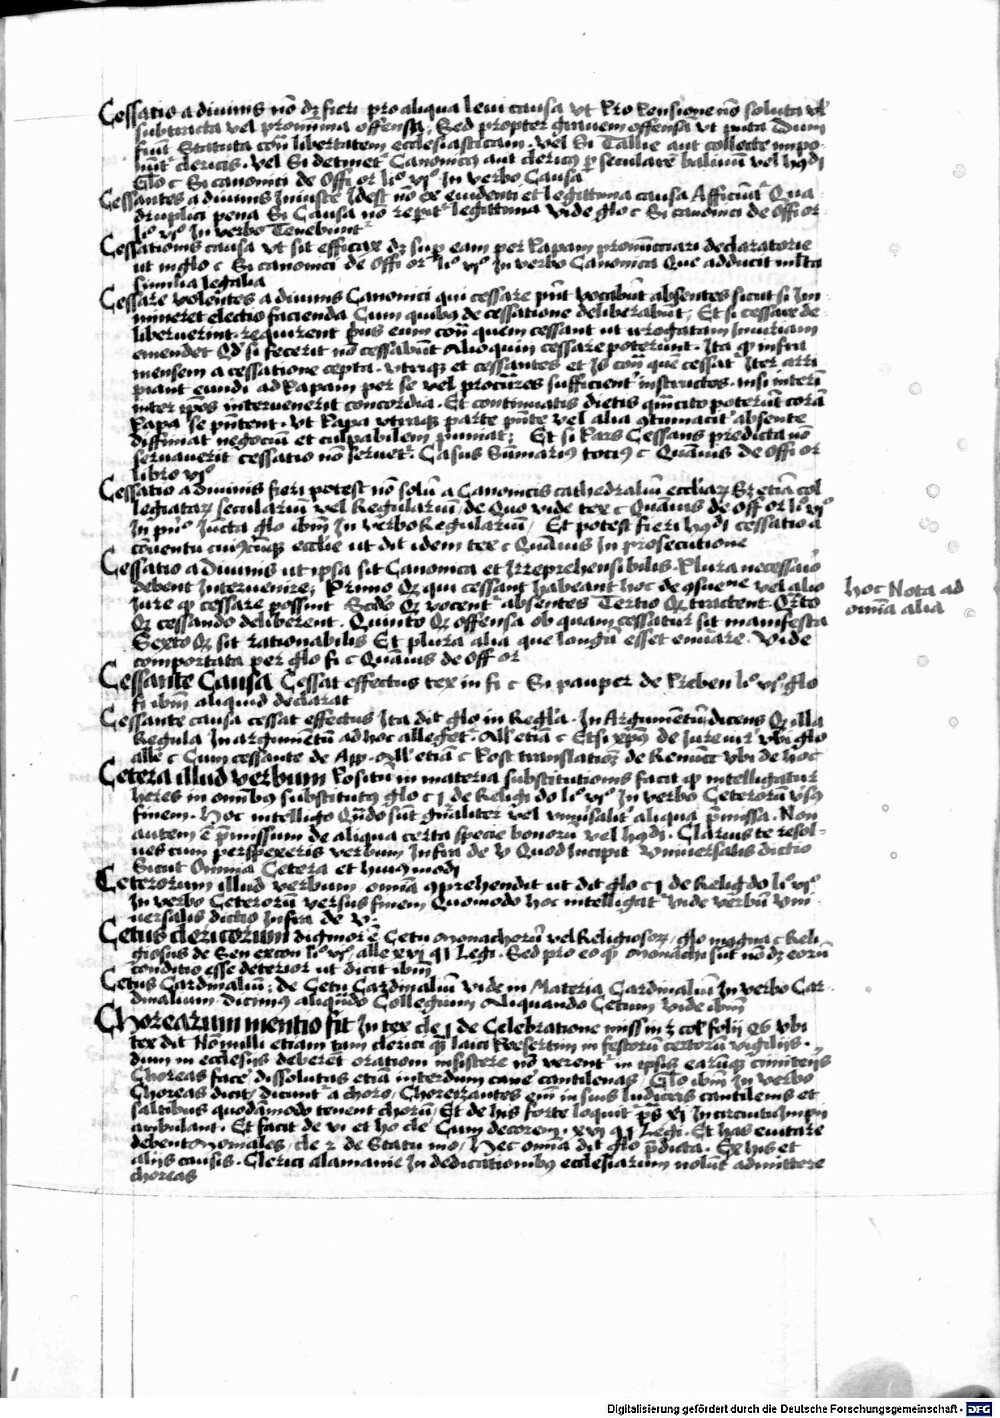 Cessatio a diuinis nō dꝫ fieri pro aliqua leui causa vt pro pensione nō soluta vł
subtracta vel pro minima offensa, Sed propter grauem offensā vt puta dum
fiūt Statuta cont̄ libertatem ecclesiasticam. vel Si Tallie aut collecte impo
nūt̄ clericis. vel Si detinet̄ Canonicꝰ aut clericꝰ ꝑ secularē baliuū vel hꝰōi
Glo c Si canonici de Offi or liº vjº In verbo Causa
Cessantes a diuinis Iniuste Idest nō ex euidenti et legittima causa Afficiūt̄ Qua
druplici pena Si Causa nō reꝑit̄ legittima vide glo c Si canonici de Offi or
liº vjº In verbo Tenebunt̄
Cessationis causa vt sit efficax dꝫ suꝑ eam per Papam pronūcciari declaratorie
ut in glo c Si canonici de Offi or liº vjº In verbo Canonica Que adducit mlta
similia legalia
Cessare volentes a diuinis Canonici qui cessare pn̄t vocabūt absentes sicut si Im
mineret electio facienda Cum quibꝰ de cessatione deliberabūt, Et si cessare de
liberuerint. requirent prius eum cont̄ quem cessant ut irrogatam Iniuriam
emendet Qd si fecerit nō cessabūt Alioquin cessare poterunt. Ita ꝙ infra
mensem a cessatione cepta. vtrique et cessantes et Is cont̄ quē cessat̄ Iter arri
piant eundi ad Papam per se vel procutores sufficient̄ instructos. nisi interī
inter ip̄os interuenerit concordia. Et continuatis dietis quā cito poterūt corā
Papa se pn̄tent. vt Papa vtraque parte pn̄te vel alia ꝯtumacit̄ absente
diffiniat negociū et culpabilem puniat; Et si Pars Cessans predicta nō
seruauerit cessatio nō seruet̄. Casus Sūmariꝰ totiꝰ c Quāuis de Offi or
libro vjº
Cessatio a diuinis fieri potest nō solū a Canonicis cathedraliū eccliaꝝ Sꝫ etiā col
legiataꝝ seculariū vel Regulariū, de Quo vide tex c Quāuis de Off or liº vjº
In pnº Iūcta glo ibm̄ In verbo Regulariū, Et potest fieri hꝰōi cessatio a
cōuentu cuiꝰcūque ecclie ut dit idem tex c Quāuis In prosecutione
Cessatio a Diuinis ut ipsa sit Canonica et Irreprehensibilis. Plura necessaio
debent Interuenire; Primo Qꝫ qui cessant habeant hoc de ꝯsue^ne vel alio
Iure ꝙ cessare possint Scdo Qꝫ vocent̄ absentes Tertio Qꝫ tractent. Qrto
Qꝫ cessando deliberent. Quinto Qꝫ offensa ob quam cessatur sit manifesta
Sexto Qꝫ sit rationabilis Et plura alia que longū esset enūare. vide
comportata per glo fi c Quāuis de Off or
hoc Nota ad
omīa alia
Cessante Causa Cessat effectus tex in fi c Si pauper de Preben liº vjº glo
fi ibm̄ aliquid declarat
Cessante causa cessat effectus Ita dit glo in Regla. In Argumētū, dicens Qꝫ illa
Regula In argumētū ad hoc alleget̄. All etiā c Etsi xpūs de Iureiur vbi glo
alle c Cum cessante de App. All etiā c Post translatioꝫ de Renūct vbi de hoc
Cetera illud verbum Positū in materia substitutionis facit ꝙ intelligatur
heres in omībꝰ substitutꝰ glo c j de Religi do liº vjº In verbo Ceterorū vsꝰ
finem. Hoc intelligo Qn̄do sūt gn̄aliter vel vniusalit̄ aliqua p̄missa. Non
autem ē p̄missum de aliqua certa specie bonorū vel hꝰōi. Clarius te resol-
ues cum perspexeris verbum Infra de V Quod Incipit Vniuersalis dictio
Sicut Omnia Cetera et huiꝰmodi
Ceterorum illud verbum omīa ꝯprehendit ut dit glo c j de Relig do liº vjº
In verbo Ceterorū versus finem Quomodo hoc intelligat̄ vide verbū vni
uersalis dictio Infra de V
Cetus clericorum dignior ē Cetu Monachorū vel Religiosoꝝ, glo magna c Reli
giosus de Sen excon liº vjº, alle xvj q j Legi. Sed pro eo ꝙ Monachi sūt nō dꝫ eorū
conditio esse deterior ut dicit ibm̄
Cetus Cardinaliū; de Cetu Cardinaliū vide in Materia Cardinaliū In verbo Car-
dinalium. Dicimꝰ aliquādo Collegium Aliquando Cetum vide ibm̄
Chorearum mentio fit In tex cle j de Celebratione miss in ꝛ col folij 96 vbi
tex dit Nōnulli etiam tam clerici quā laici Presertim in festorū certorū vigilijs.
dum in ecclesijs deberēt orationi insistere nō verent̄ in ipsis earūque cimiterijs
Choreas face dissolutas etiā interdum cane cantilenas, Glo ibm̄ In verbo
Choreas dicit, dicunt̄ a choro, Choreizantes em̄ in suis ludicris cantilenis et
saltibus quodāmodo tenent chorū, Et de his forte loquit̄ ps xj In circuitu Impij
ambulant. Et facit de vi et ho cle Cum decorem. xvj q j Legi. Et has euitare
debent Moniales, cle 2 de Statu mo, Hec omīa dit glo p̄dicta. Ex his et
alijs causis. Clerici alamanie In dedicationibꝰ ecclesiarum nolūt admittere
choreas
Digitalisierung gefördert durch die Deutsche Forschungsgemeinschaft - DFG